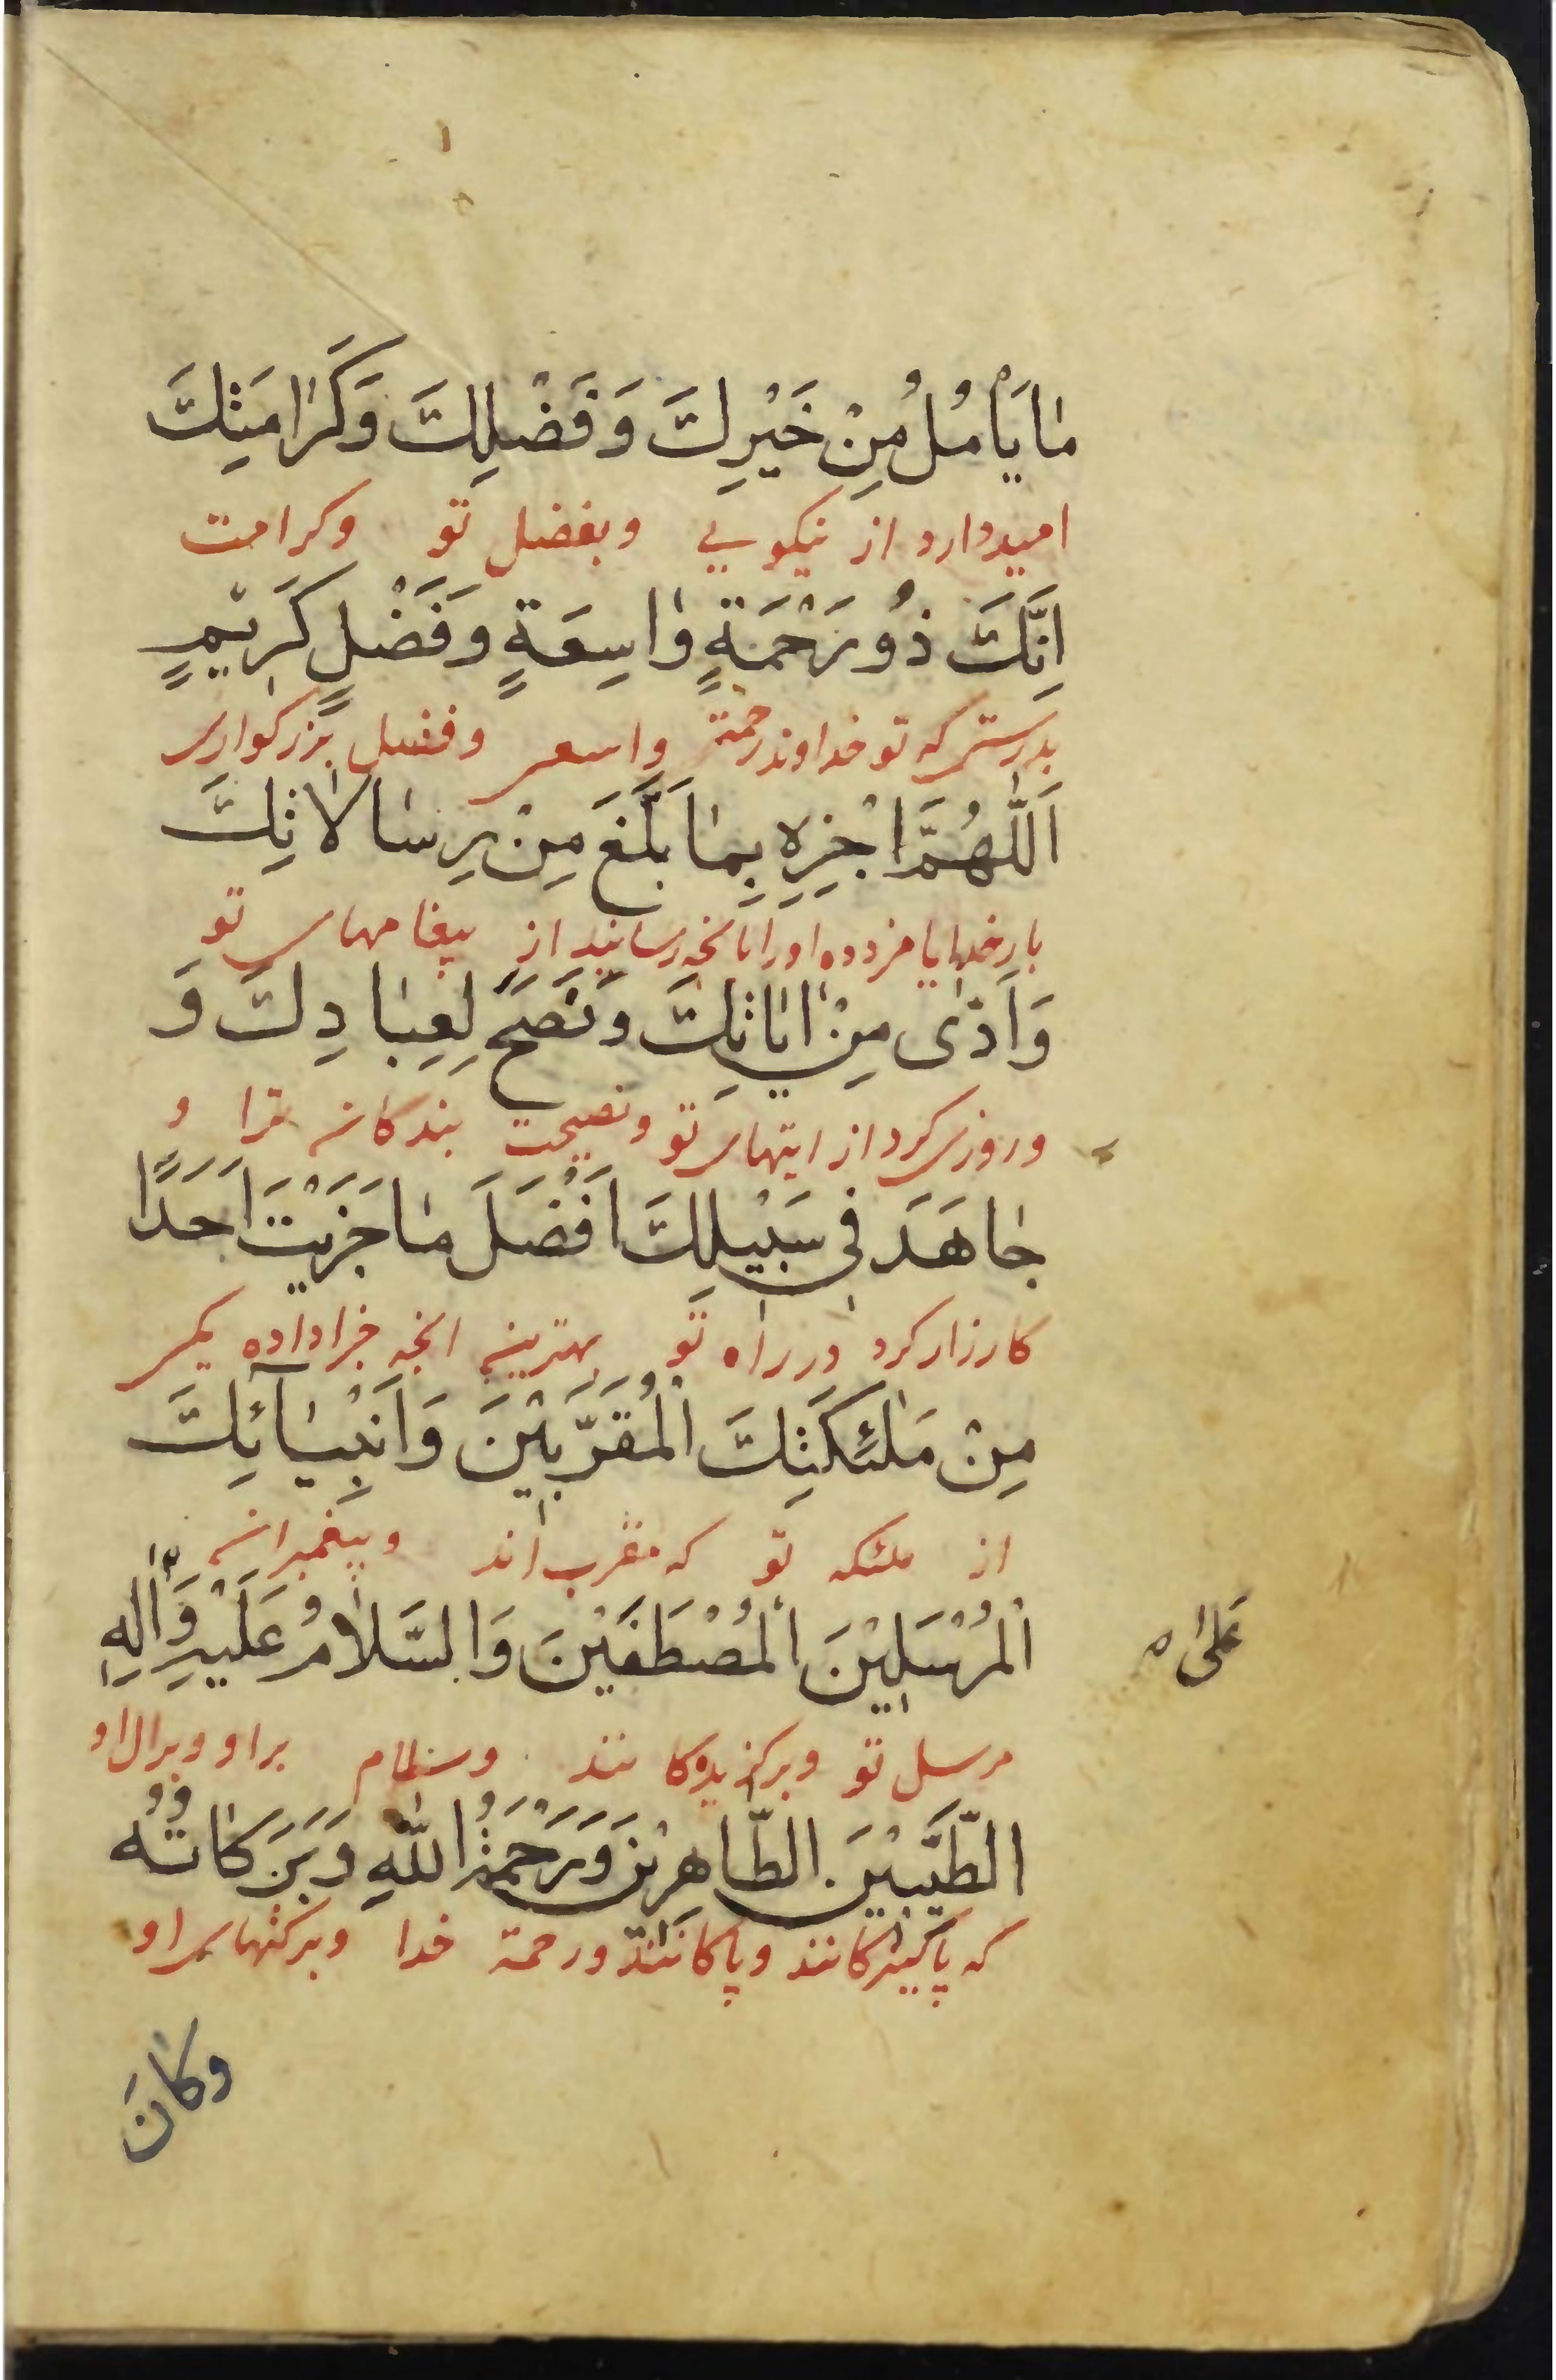 مٰا يَأْمُلُ مِنْ خَيْرِكَ وَفَضْلِكَ وَكَرٰامَتِكَ
امیددارد از نیکویی وبفضل تو وکرامت
اِنَّكَ ذُو رَحْمَةٍ وٰاسِعَةٍ وَفَضْلٍ كَرِيْمٍ
بدرستی که تو خداوند رحمة واسعی وفضل بزرکواری
اَللّٰهُمَّ اجْزِهِ بِمٰا بَلَّغَ مِنْ رِسٰالٰاتِكَ
بارخدایا مزد ده اورا بانچه رسانید از پیغامهای تو
وَاَدّٰى مِنْ اٰيٰاتِكَ وَنَصَحَ لِعِبٰادِكَ وَ
وروزی کرد از ایتهای تو ونصیحت بندکان ترا و
جٰاهَدَ فِي سَبِيْلِكَ اَفْضَلَ مٰا جَزَيْتَ اَحَدًا
کارزار کرد در راه تو بهترین انچه جزا داده یکی
مِنْ مَلٰئِكَتِكَ الْمُقَرَّبِيْنَ وَاَنْبِيٰآئِكَ
از ملئکه تو که مقرب اند وپیغمبران
الْمُرْسَلِيْنَ الْمُصْطَفَيْنَ وَالسَّلٰامُ عَلَيْهِ وَاٰلِهِ
عَلىٰ
مرسل تو وبرکزیدکانند وسلام براو وبرال او
الطَّيِّبِيْنَ الطّٰاهِرِيْنَ وَرَحْمَةُ اللّٰهِ وَبَرَكٰاتُهُ
که پاکیزکانند وپاکانند ورحمة خدا وبرکتهای او
وَكٰانَ